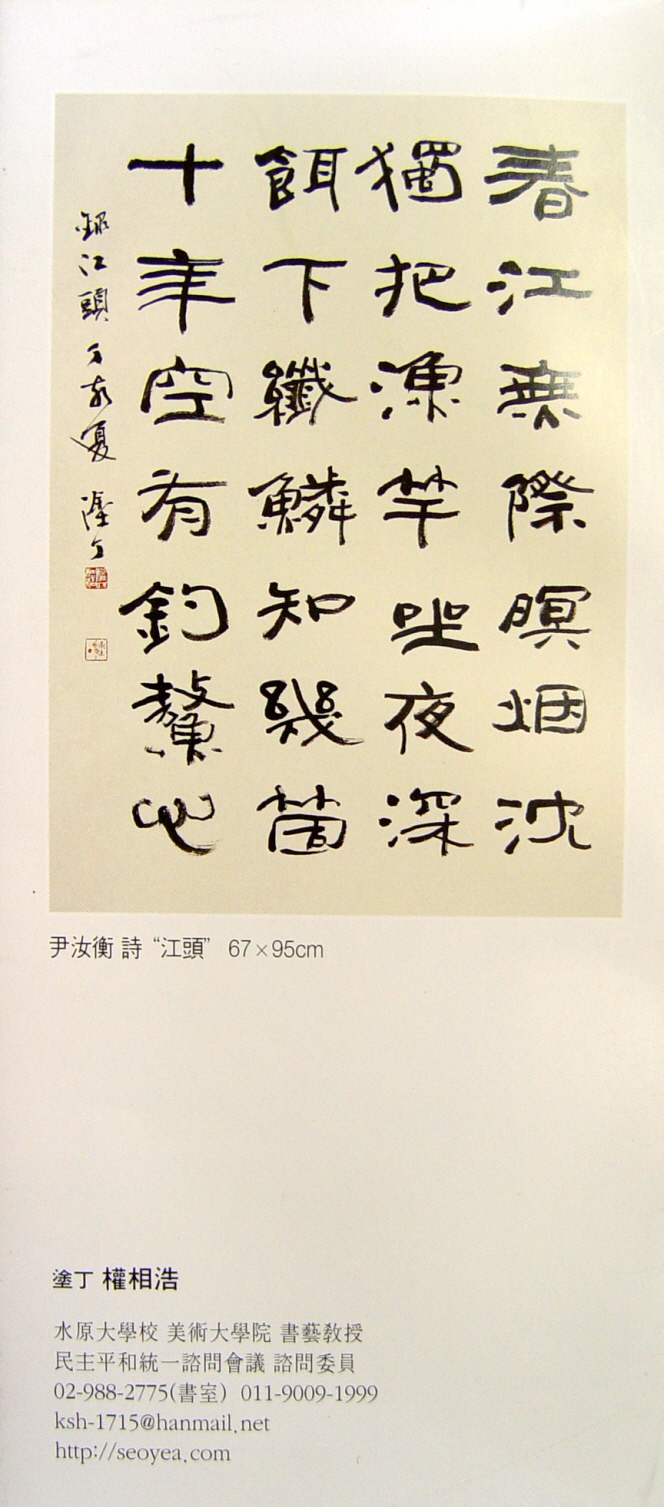 春江無際暝烟沈
獨把漁竿坐夜深
餌下纖鱗知幾箇
十年空有釣鰲心
錄江頭
夏 塗丁
尹汝衡 詩 “江頭” 67×95cm
塗丁 權相浩
水原大學校 美術大學院 書藝敎授
民主平和統一諮問會議 諮問委員
02-988-2775(書室) 011-9009-1999
ksh-1715@hanmail.net
http://seoyea.com